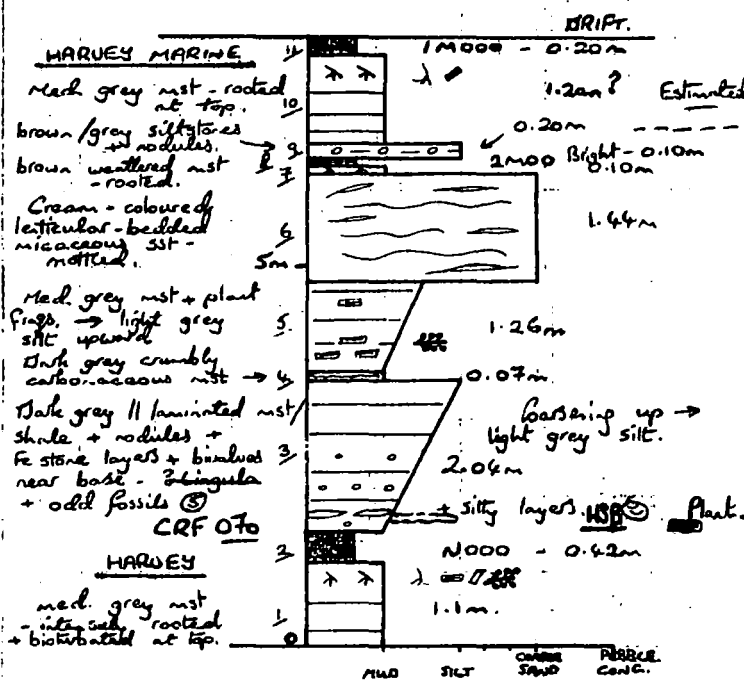 DRIFT.
HARVEY MARINE
11
1M000 - 0.20m
Med. grey mst - rooted
at top.
10
1.20m? Estimated
brown/grey siltstones
+ nodules.
9
0.20m
brown weathered mst
- rooted.
8
7
2MOD Bright - 0.10m
0.10m
Cream - coloured
lenticular - bedded
micaceous sst -
mottled.
6
1.44m
5m
Med. grey mst + plant
frags. → light grey
silt upward
5
1.26m
Dark grey crumbly
carbonaceous mst →
4
0.07m
Dark grey // laminated mst/
shale + nodules +
Fe stone layers + bivalves
near base - ?Lingula
+ odd fossils (5)
3
Coarsening up →
light grey silt.
2.04m
+ silty layers. Plant.
CRF 070
2
N000 - 0.42m
HARVEY
med. grey mst
- intensely rooted
+ bioturbated at top.
1
1.1m.
0
MUD SILT COARSE SAND PEBBLE CONG.